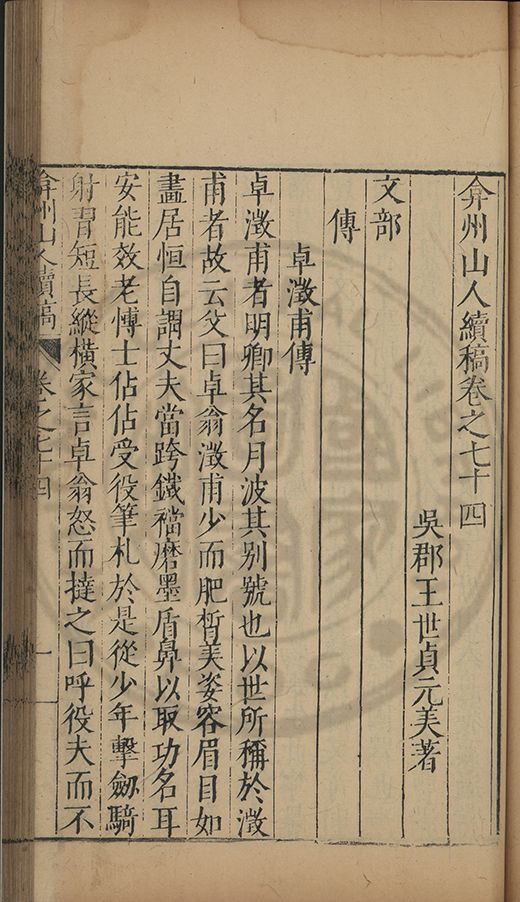 弇州山人續稿卷之七十四
吳郡王世貞元美著
文部
傳
卓澂甫傳
卓澂甫者明卿其名月波其别號也以世所稱於澂
甫者故云父曰卓翁澂甫少而肥皙美姿容眉目如
畫居恒自謂丈夫當跨鐵襠磨墨盾鼻以取功名耳
安能效老愽士佔佔受役筆札於是從少年擊劒騎
射習短長縱橫家言卓翁怒而撻之曰呼役夫而不
弇州山人續稿 卷之七十四 一